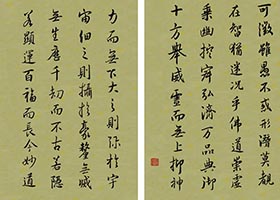 可徵雖愚不惑形潛莫覩
在智猶迷況乎佛道崇虛
乘幽控寂弘濟萬品典御
十方舉威靈而無上抑神
力而無下大之則彌於宇
宙細之則攝於毫釐無滅
無生歷千劫而不古若隱
若顯運百福而長今妙道